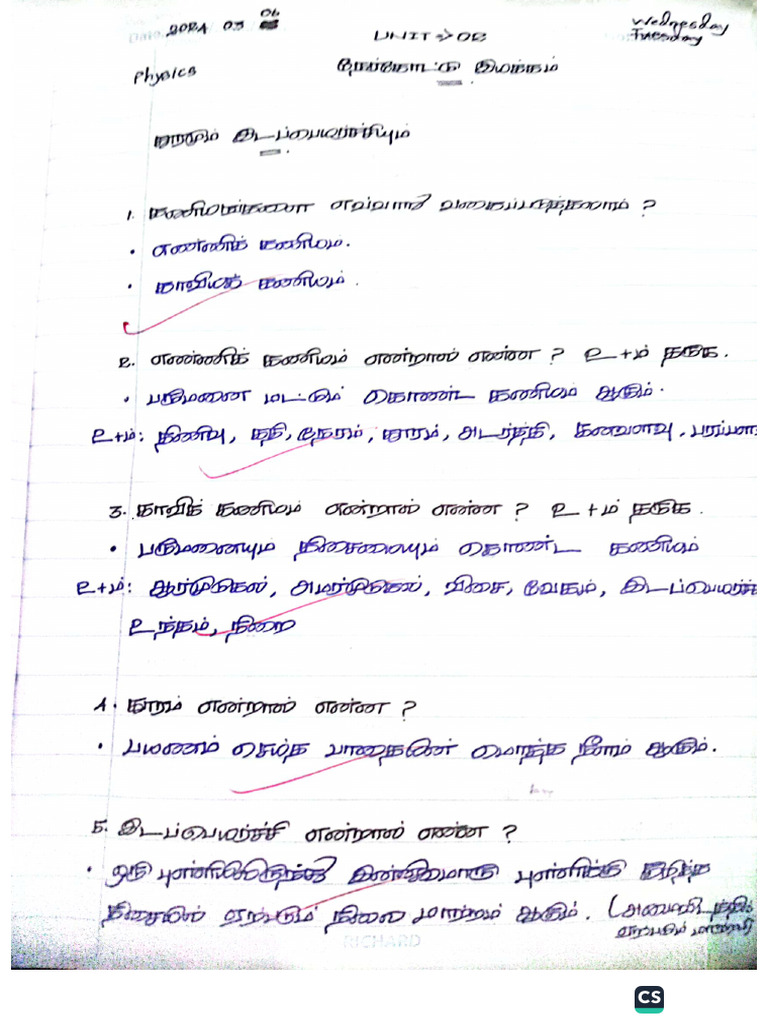 2024 03 06
Wednesday
Tuesday
UNIT → 02
Physics
நேர்கோட்டு இயக்கம்
தூரமும் இடப்பெயர்ச்சியும்
1. கணியங்களை எவ்வாறு வகைப்படுத்தலாம் ?
• எண்ணிக் கணியம்.
• காவிக் கணியம்.
2. எண்ணிக் கணியம் என்றால் என்ன ? உ+ம் தருக.
• பருமனை மட்டும் கொண்ட கணியம் ஆகும்.
உ+ம்: திணிவு, கதி, நேரம், தூரம், அடர்த்தி, கனவளவு, பரப்பளா
3. காவிக் கணியம் என்றால் என்ன ? உ+ம் தருக.
• பருமனையும் திசையையும் கொண்ட கணியம்
உ+ம்: ஆர்முடுகல், அமர்முடுகல், விசை, வேகம், இடப்பெயர்ச்
உந்தம், நிறை
4. தூரம் என்றால் என்ன ?
• பயணம் செய்த பாதையின் மொத்த நீளம் ஆகும்.
5. இடப்பெயர்ச்சி என்றால் என்ன ?
• ஒரு புள்ளியிலிருந்து இன்னுமொரு புள்ளிக்கு குறித்த
திசையில் ஏற்படும் நிலை மாற்றம் ஆகும்.
ஏற்படும்
RICHARD
CS